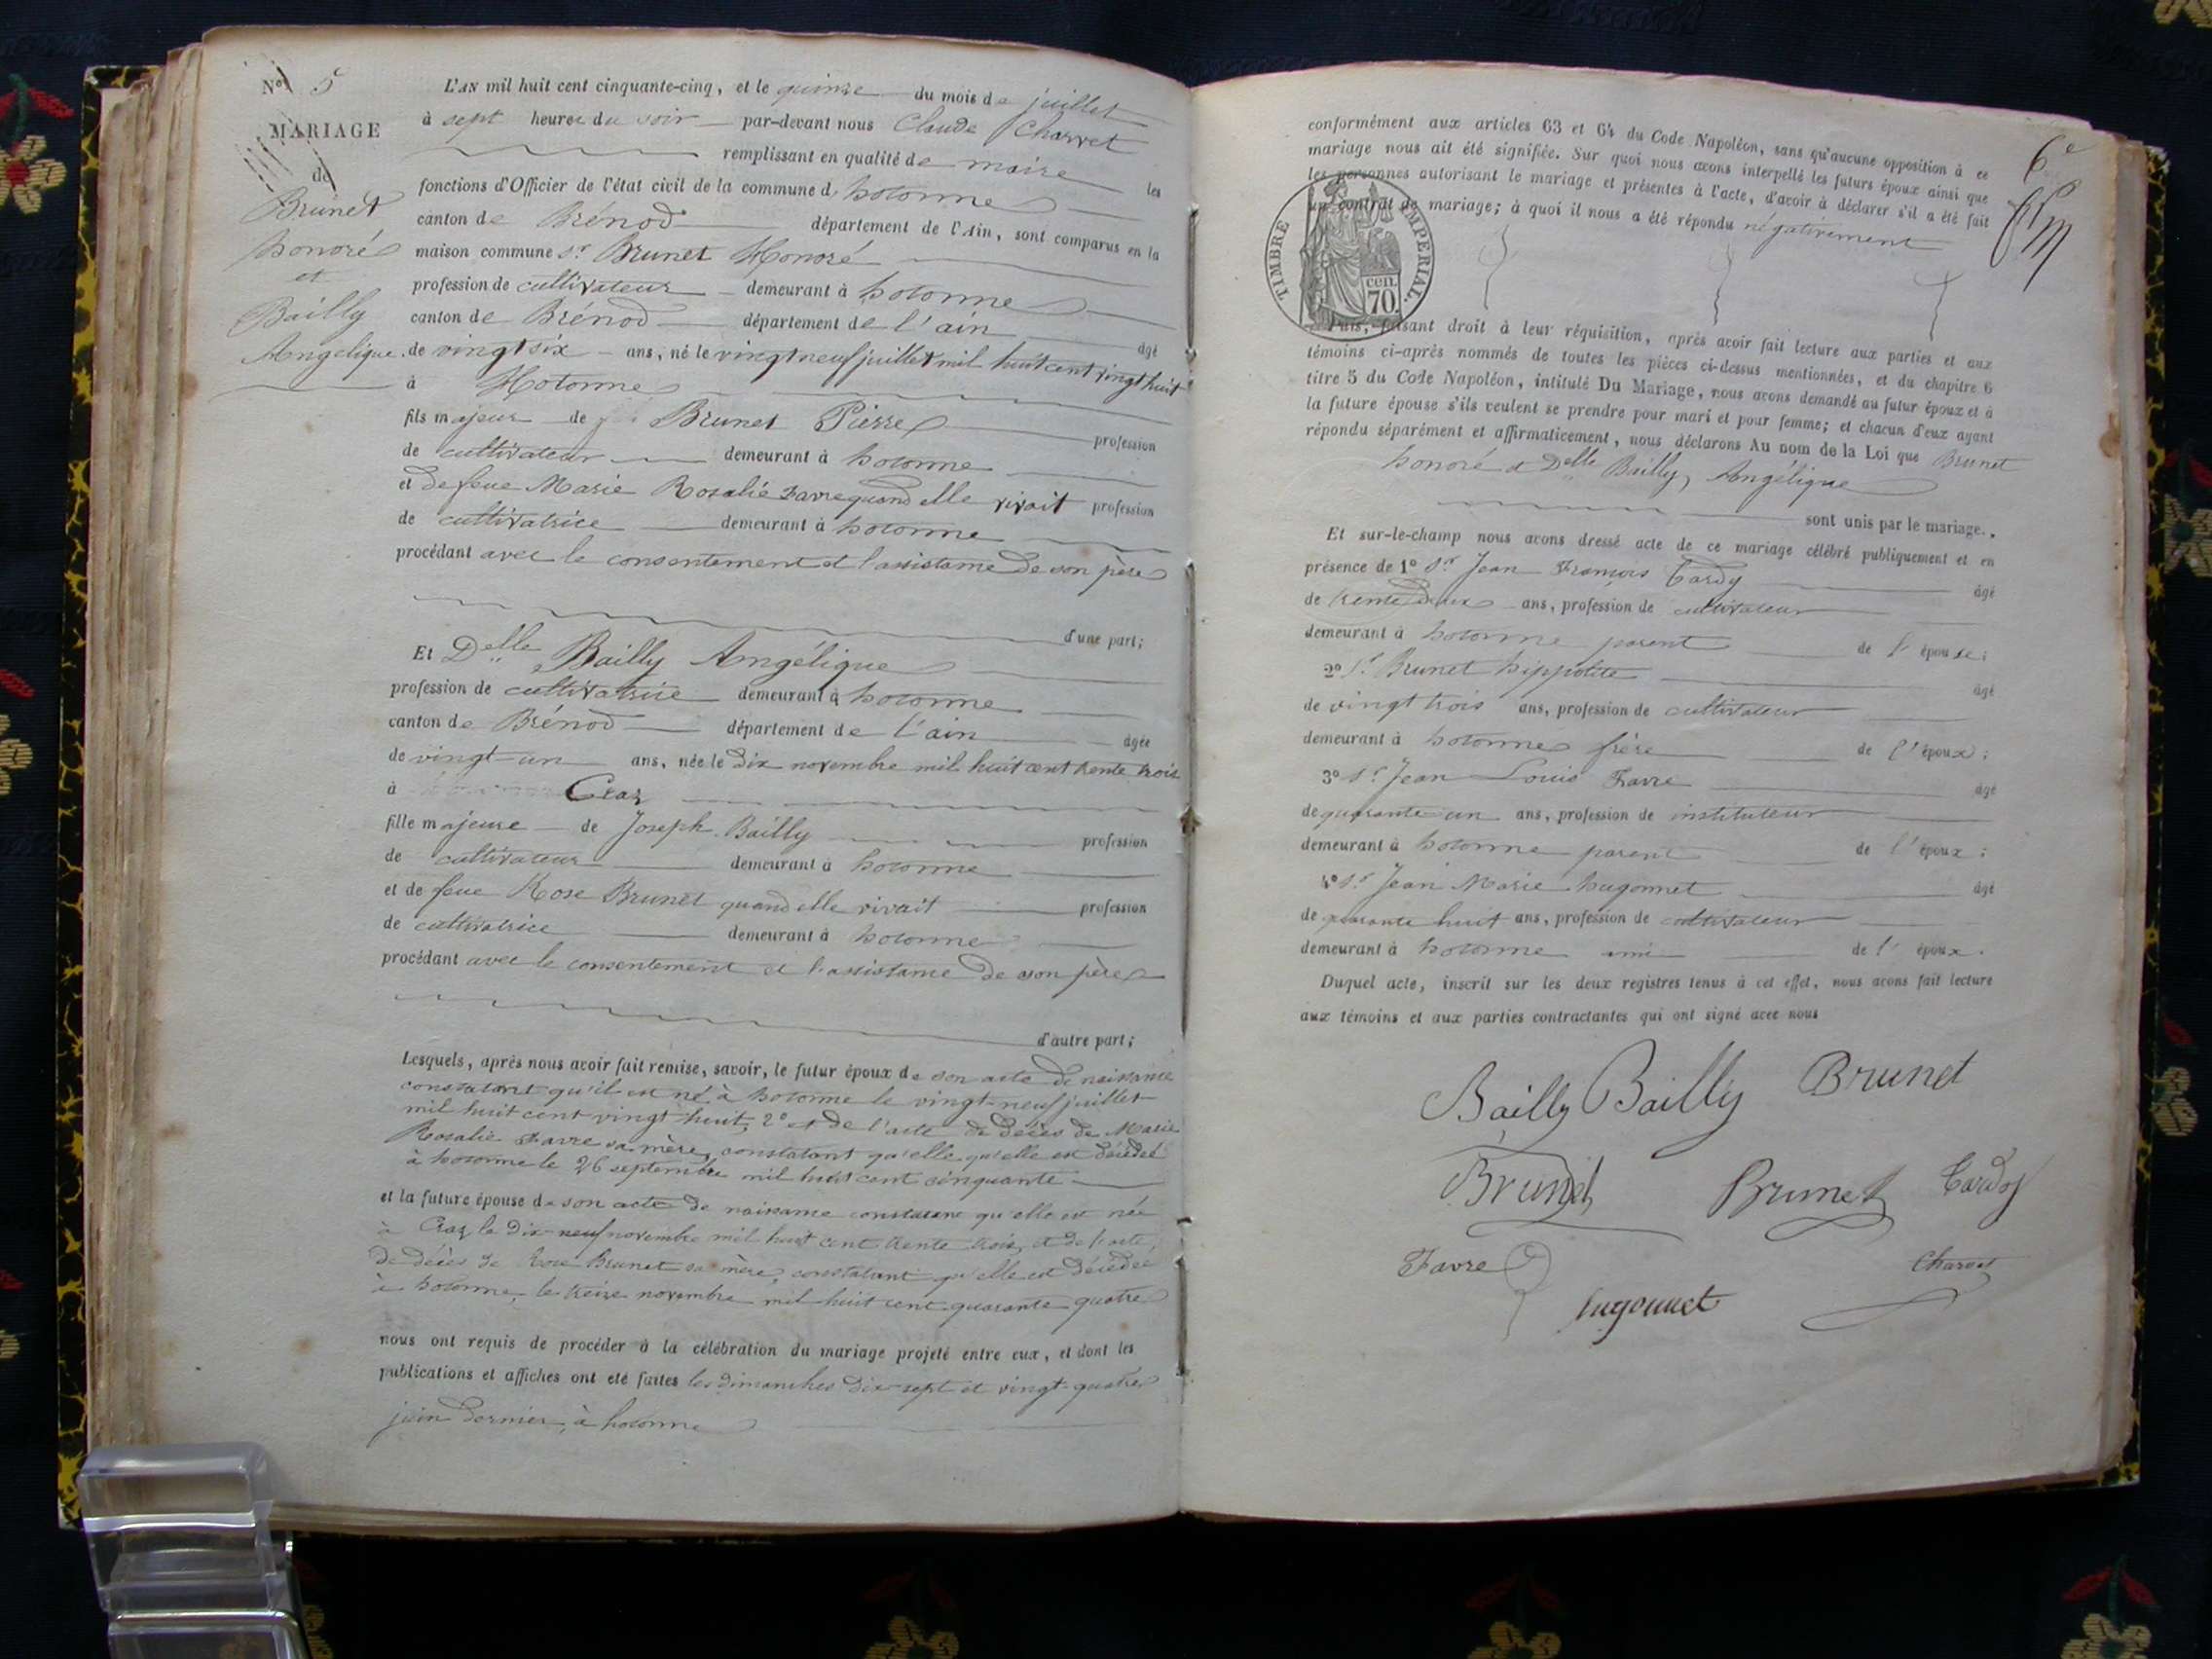 N° 5
MARIAGE
de
Brunet
honoré
et
Bailly
Angélique.
L'AN mil huit cent cinquante-cinq, et le quinze du mois de juillet
à sept heures du soir par-devant nous Claude Charvet
remplissant en qualité de maire les
fonctions d'Officier de l'état civil de la commune d. hotonne
canton de Brénod département de l'Ain, sont comparus en la
maison commune Sr Brunet Honoré
profession de cultivateur demeurant à hotonne
canton de Brénod département de l'ain âgé
de vingt six ans, né le vingt neuf juillet mil huit cent vingt huit
à Hotonne
fils majeur de Brunet Pierre profession
de cultivateur demeurant à hotonne
et de feue Marie Rosalie Favre quand elle vivait profession
de cultivatrice demeurant à hotonne
procédant avec le consentement et l'assistance de son père
d'une part;
Et Delle Bailly Angélique
profession de cultivatrice demeurant à hotonne
canton de Brénod département de l'ain âgée
de vingt-un ans, née le dix novembre mil huit cent trente trois
à Craz
fille majeure de Joseph Bailly profession
de cultivateur demeurant à hotonne
et de feue Rose Brunet quand elle vivait profession
de cultivatrice demeurant à hotonne
procédant avec le consentement et l'assistance de son père
d'autre part;
Lesquels, après nous avoir fait remise, savoir, le futur époux de son acte de naissance
constatant qu'il est né à hotonne le vingt-neuf juillet
mil huit cent vingt huit, 2° et de l'acte de décès de Marie
Rosalie Favre sa mère, constatant qu'elle qu'elle est décédée
à hotonne le 26 septembre mil huit cent cinquante
et la future épouse de son acte de naissance constatant qu'elle est née
à Craz le dix-neuf novembre mil huit cent trente trois, et de l'acte
de décès de Rose Brunet sa mère, constatant qu'elle est décédée
à hotonne, le treize novembre mil huit cent quarante quatre
nous ont requis de procéder à la célébration du mariage projeté entre eux, et dont les
publications et affiches ont été faites les dimanches dix-sept et vingt-quatre
juin dernier, à hotonne
6e
conformément aux articles 63 et 64 du Code Napoléon, sans qu'aucune opposition à ce
mariage nous ait été signifiée. Sur quoi nous avons interpellé les futurs époux ainsi que
les personnes autorisant le mariage et présentes à l'acte, d'avoir à déclarer s'il a été fait
un contrat de mariage; à quoi il nous a été répondu négativement
TIMBRE IMPERIAL.
70 cen.
Puis, faisant droit à leur réquisition, après avoir fait lecture aux parties et aux
témoins ci-après nommés de toutes les pièces ci-dessus mentionnées, et du chapitre 6
titre 5 du Code Napoléon, intitulé Du Mariage, nous avons demandé au futur époux et à
la future épouse s'ils veulent se prendre pour mari et pour femme; et chacun d'eux ayant
répondu séparément et affirmativement, nous déclarons Au nom de la Loi que Brunet
honoré et Delle Bailly, Angélique
sont unis par le mariage.
Et sur-le-champ nous avons dressé acte de ce mariage célébré publiquement et en
présence de 1° Sr Jean François Tardy âgé
de trente deux ans, profession de cultivateur
demeurant à hotonne parent de l'épouse;
2° Sr Brunet hippolite âgé
de vingt trois ans, profession de cultivateur
demeurant à hotonne frère de l'époux;
3° Sr Jean Louis Favre âgé
de quarante-un ans, profession de instituteur
demeurant à hotonne parent de l'époux;
4° Sr Jean Marie hugonnet âgé
de quarante huit ans, profession de cultivateur
demeurant à hotonne ami de l'époux.
Duquel acte, inscrit sur les deux registres tenus à cet effet, nous avons fait lecture
aux témoins et aux parties contractantes qui ont signé avec nous
Bailly Bailly Brunet
Brunet Brunet Tardy
Favre Charvet
hugonnet